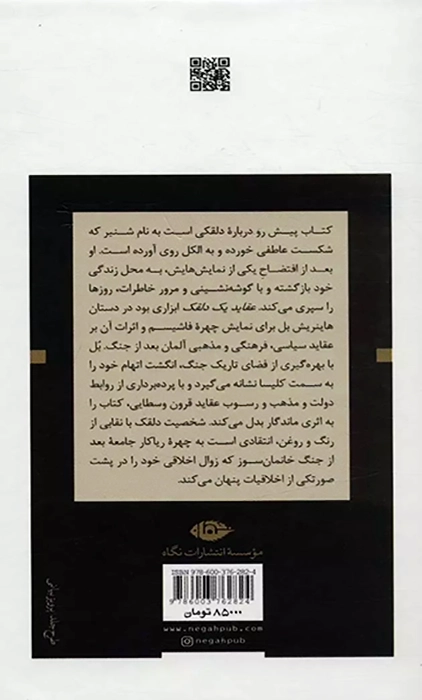 کتاب پیش رو دربارهٔ دلقکی است به نام شنیر که
شکست عاطفی خورده و به الکل روی آورده است. او
بعد از افتضاحِ یکی از نمایش‌هایش، به محل زندگی
خود بازگشته و با گوشه‌نشینی و مرور خاطرات، روزها
را سپری می‌کند. عقاید یک دلقک ابزاری بود در دستان
هاینریش بل برای نمایش چهرهٔ فاشیسم و اثرات آن بر
عقاید سیاسی، فرهنگی و مذهبی آلمان بعد از جنگ. بُل
با بهره‌گیری از فضای تاریک جنگ، انگشت اتهام خود را
به سمت کلیسا نشانه می‌گیرد و با پرده‌برداری از روابط
دولت و مذهب و رسوب عقاید قرون وسطایی، کتاب را
به اثری ماندگار بدل می‌کند. شخصیت دلقک با نقابی از
رنگ و روغن، انتقادی است به چهرهٔ ریاکار جامعهٔ بعد
از جنگ خانمان‌سوز که زوال اخلاقی خود را در پشت
صورتکی از اخلاقیات پنهان می‌کند.
مؤسسهٔ انتشارات نگاه
ISBN 978-600-376-282-4
9 786003 762824
۸۵۰۰۰ تومان
www.negahpub.com
negahpub
طرح جلد: